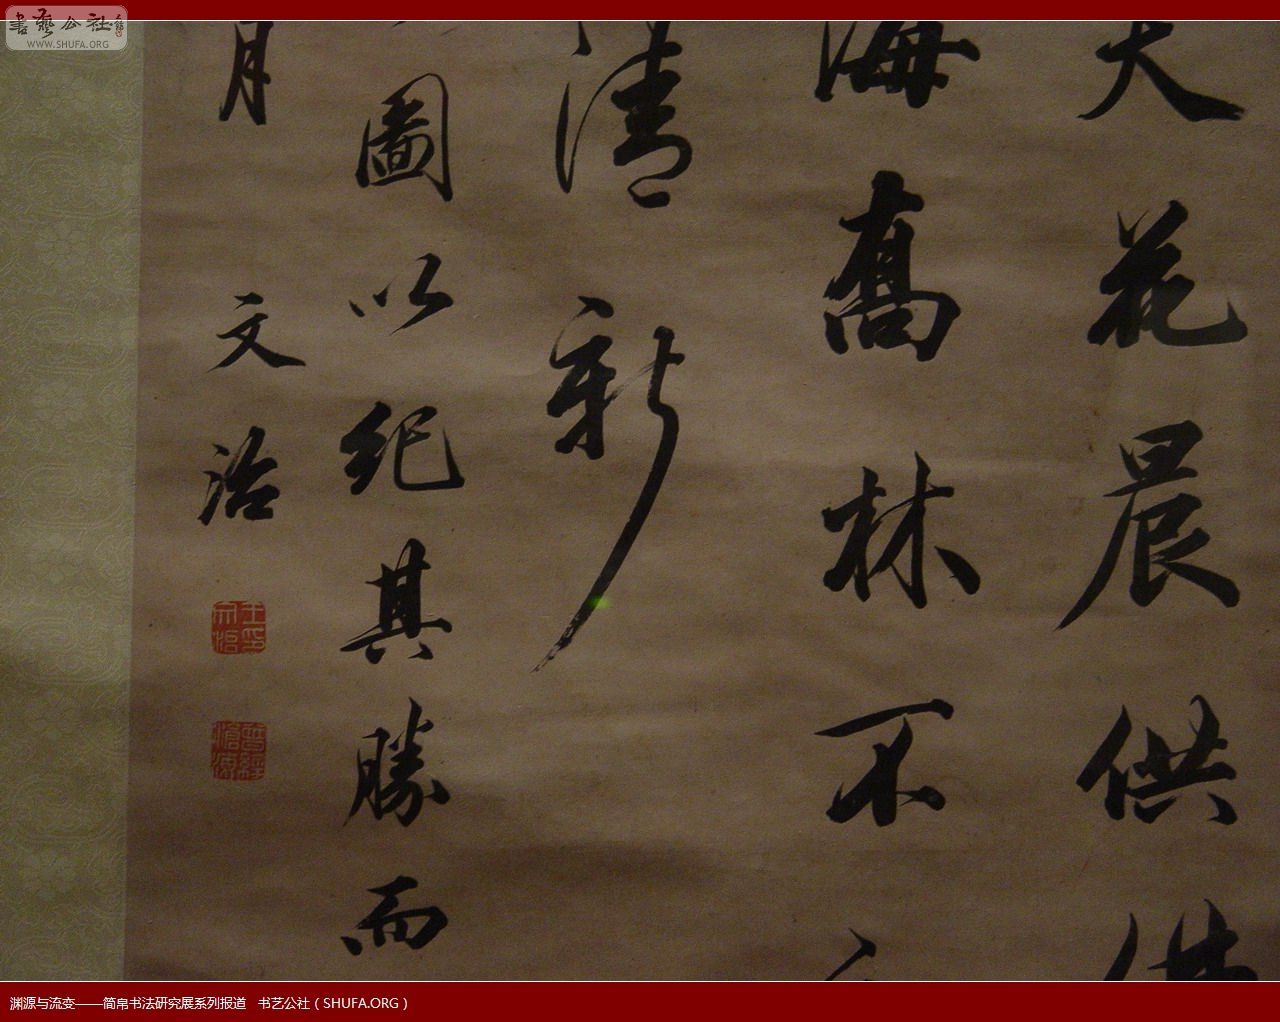 书艺公社
WWW.SHUFA.ORG
大花晨供
海高林不
清新
圖以紀其勝而
月
文治
王文治印
渊源与流变——简帛书法研究展系列报道 书艺公社（SHUFA.ORG）